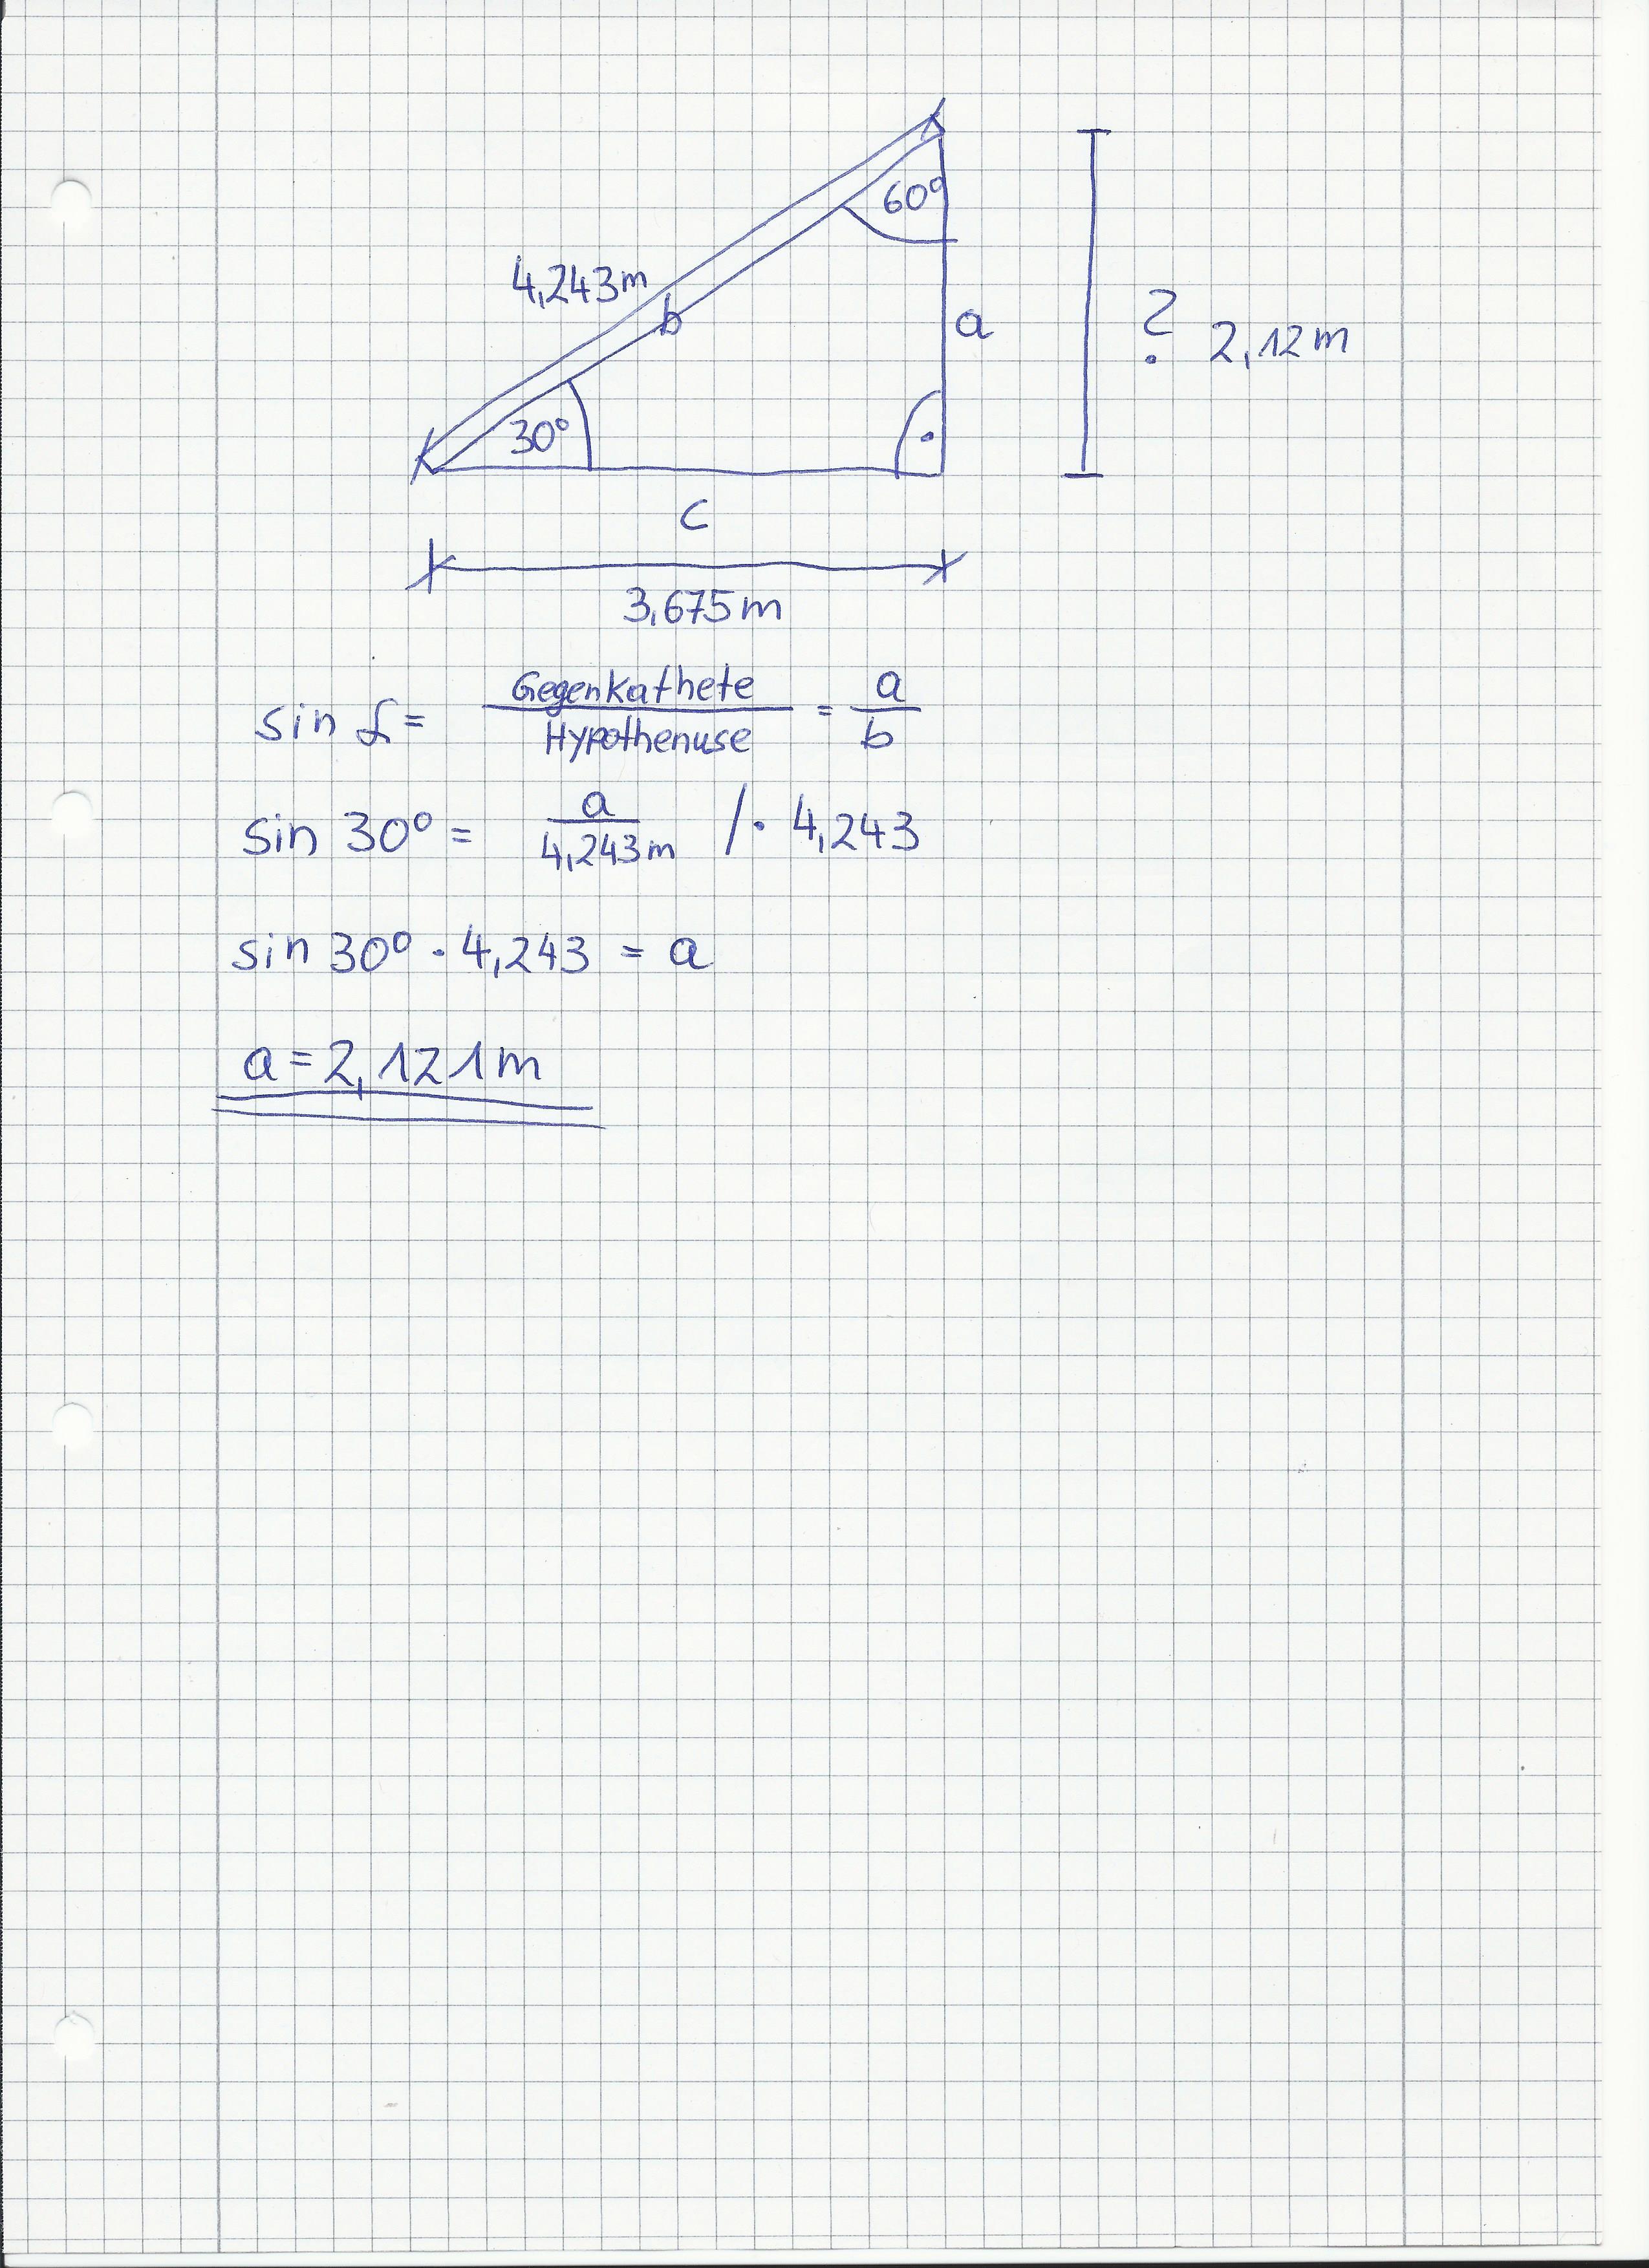 60°
4,243m
b
a
? 2,12m
30°
c
3,675m
sin α = Gegenkathete / Hypothenuse = a / b
sin 30° = a / 4,243m /· 4,243
sin 30° · 4,243 = a
a = 2,121m